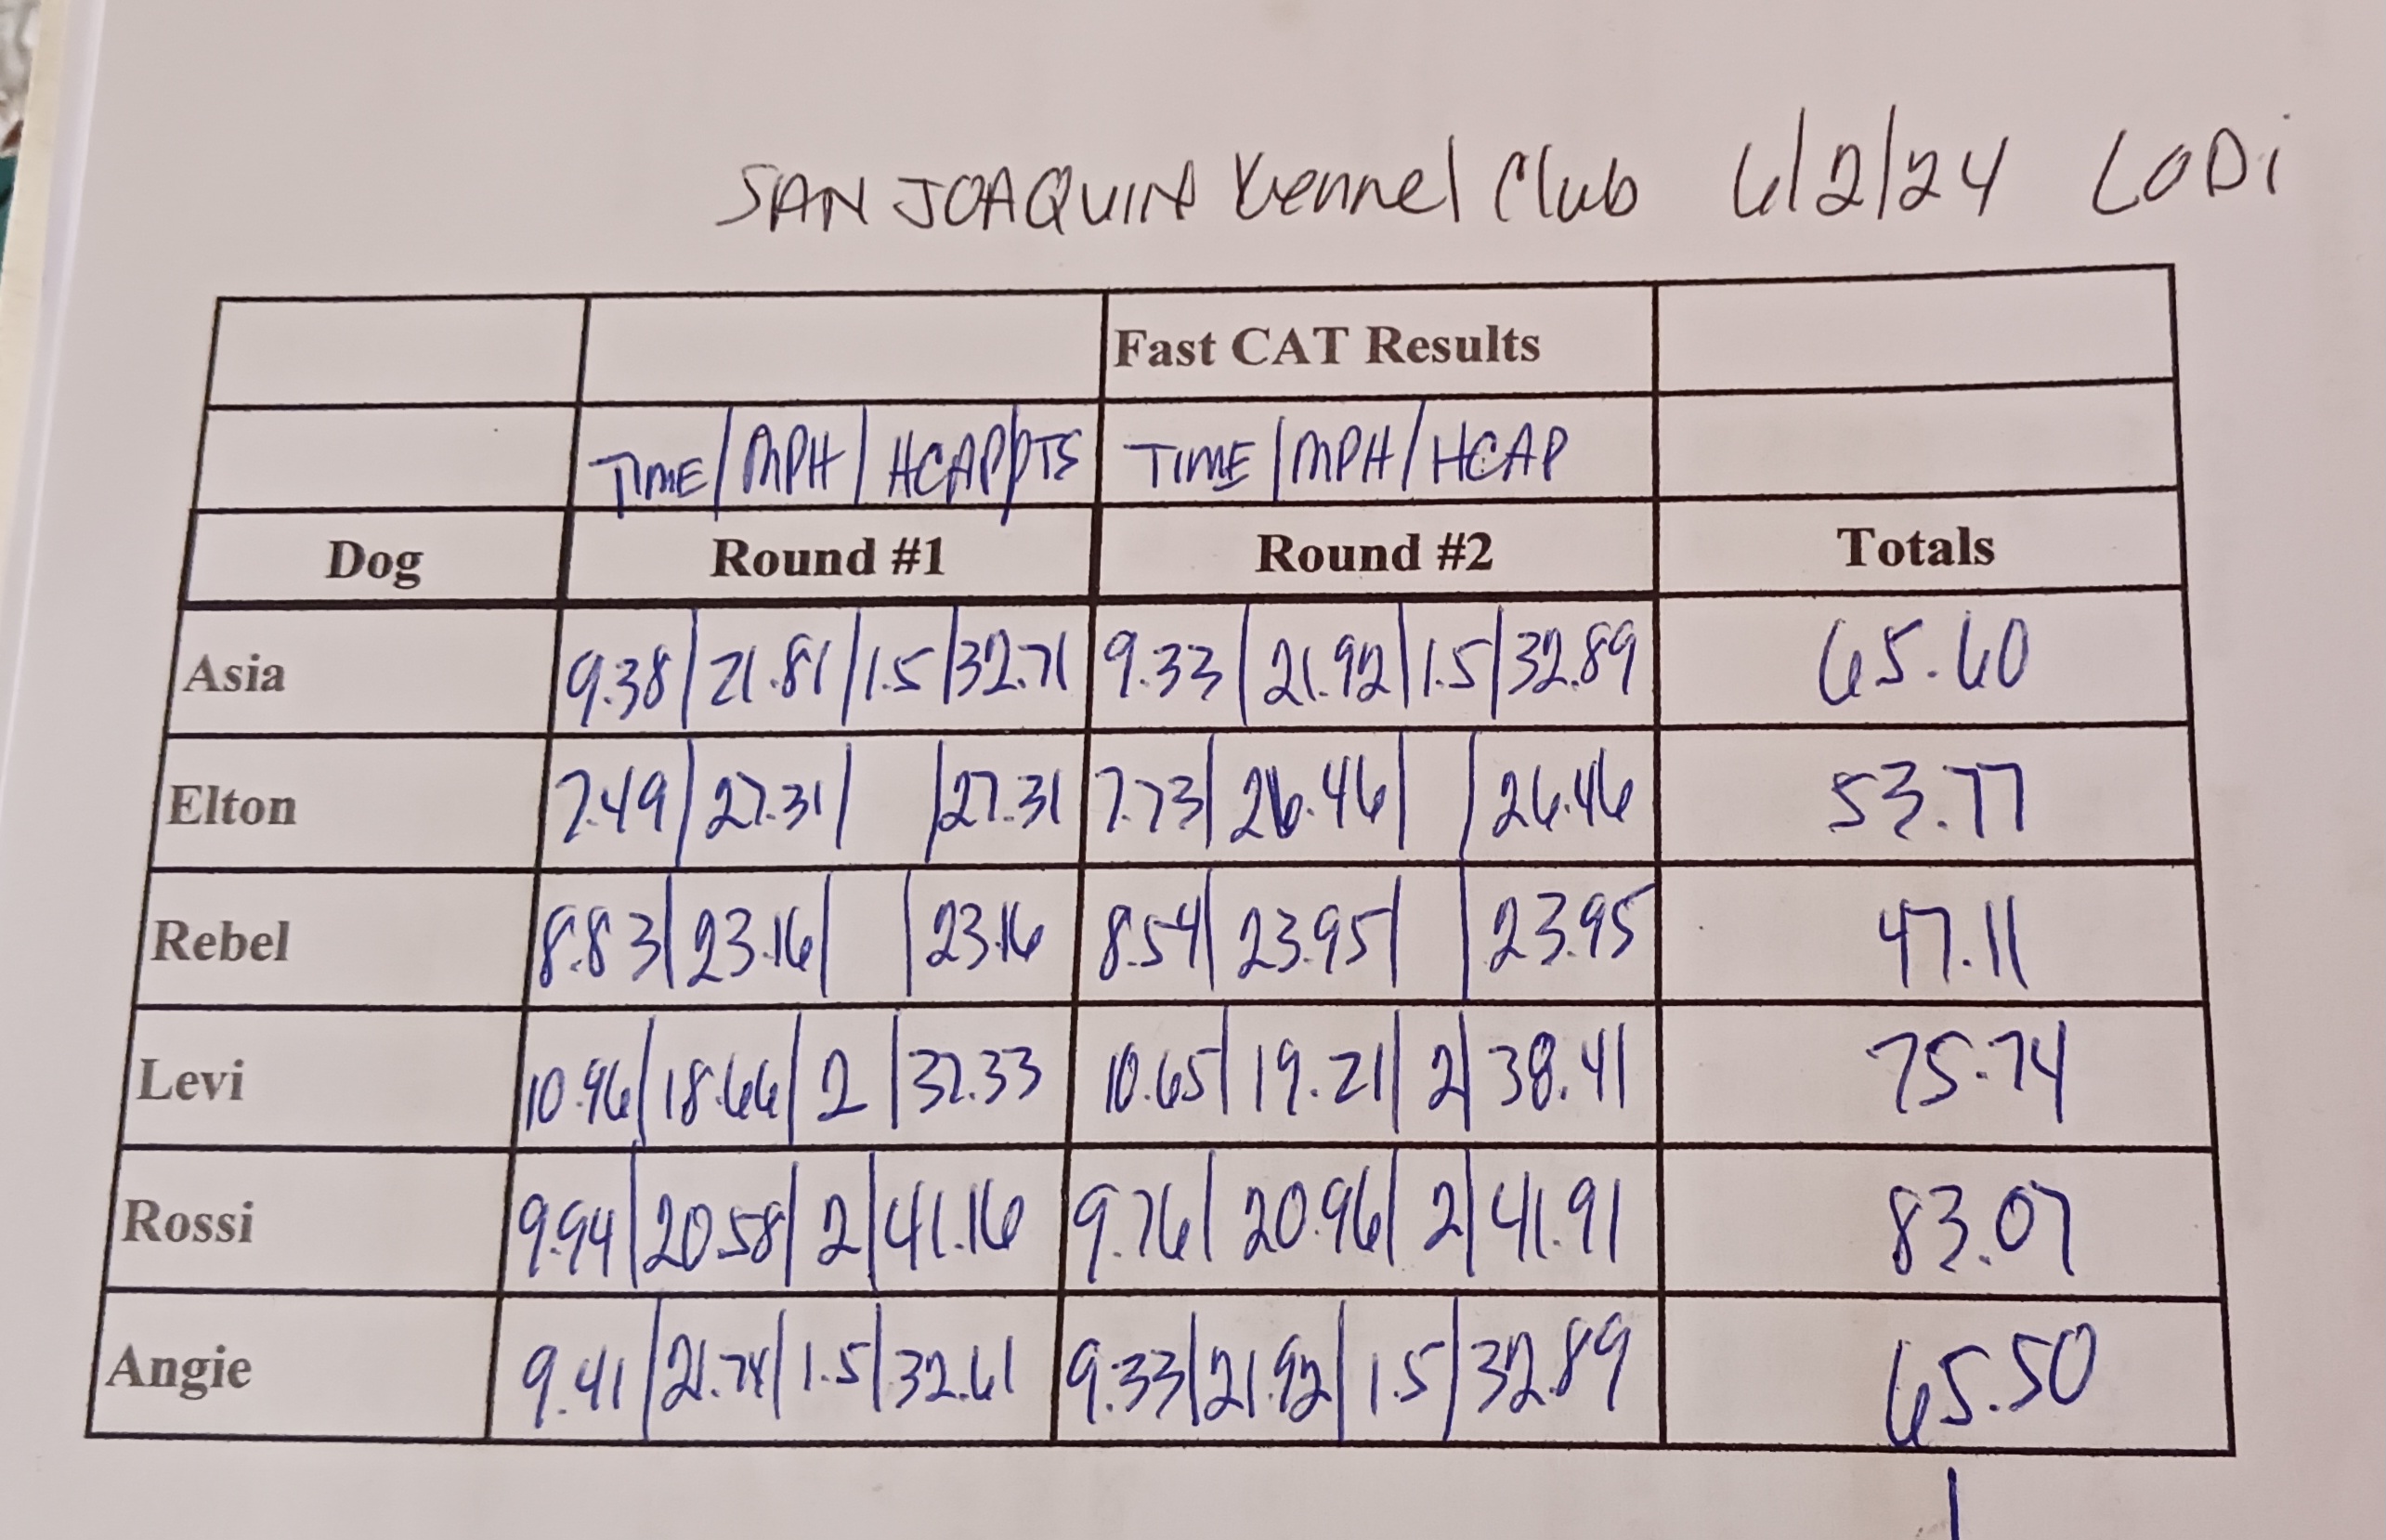 SAN JOAQUIN Kennel Club 6/2/24 LODi
Fast CAT Results
TIME | MPH | HCAP | PTS TIME | MPH | HCAP
Dog Round #1 Round #2 Totals
Asia 9.38 | 21.81 | 1.5 | 32.71 9.33 | 21.92 | 1.5 | 32.89 65.60
Elton 7.49 | 27.31 | | 27.31 7.73 | 26.46 | | 26.46 53.77
Rebel 8.83 | 23.16 | | 23.16 8.54 | 23.95 | | 23.95 47.11
Levi 10.96 | 18.66 | 2 | 37.33 10.65 | 19.21 | 2 | 38.41 75.74
Rossi 9.94 | 20.58 | 2 | 41.16 9.76 | 20.96 | 2 | 41.91 83.07
Angie 9.41 | 21.74 | 1.5 | 32.61 9.33 | 21.92 | 1.5 | 32.89 65.50